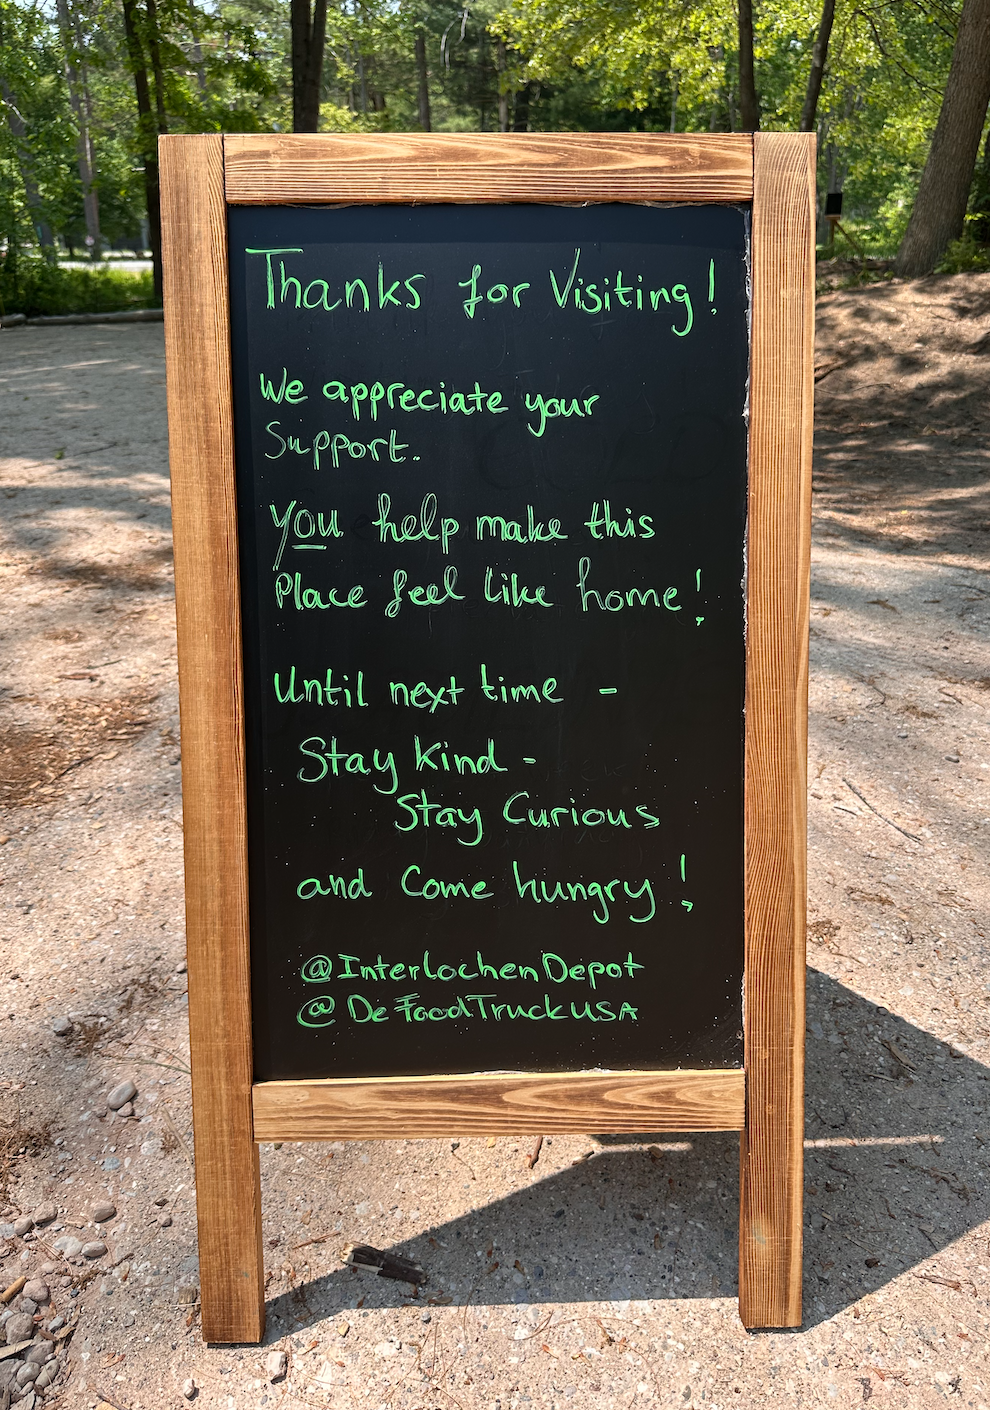 Thanks for Visiting!
We appreciate your
Support.
You help make this
Place feel like home!
Until next time -
Stay Kind -
Stay Curious
and Come hungry!
@InterlochenDepot
@DeFoodTruckUSA